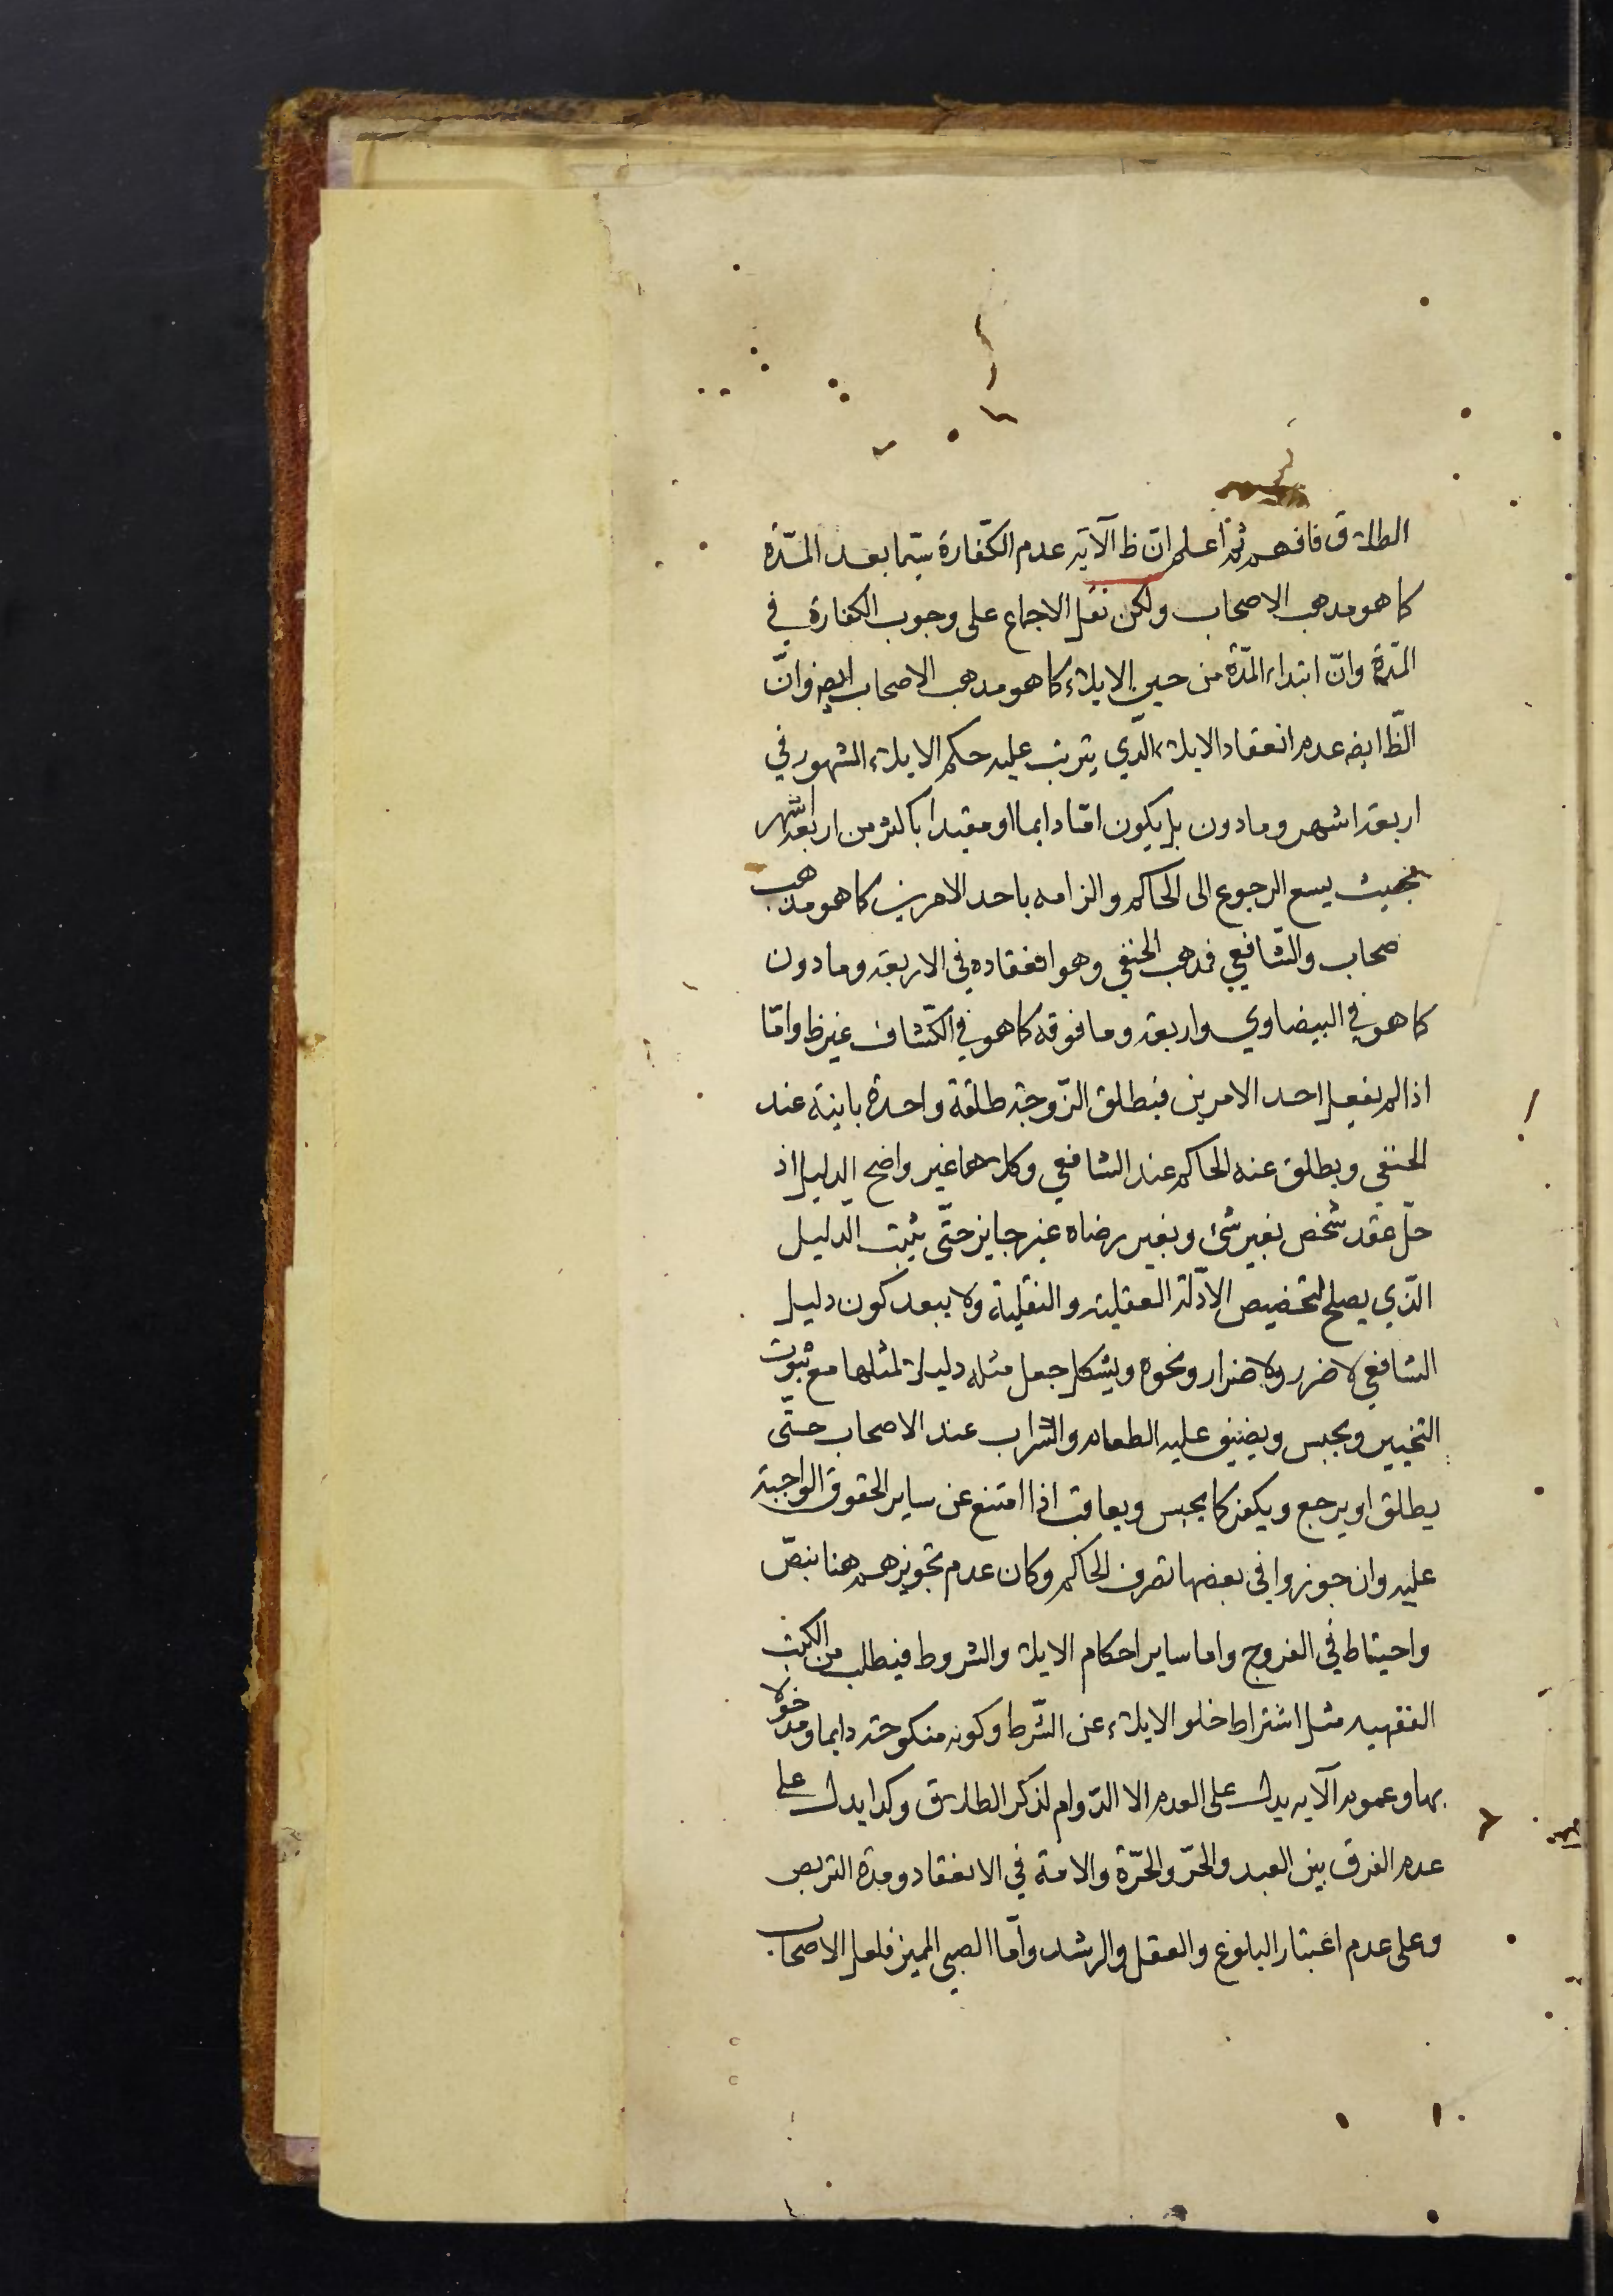 الطلاق فافهم ثم اعلم ان ظ الآية عدم الكفارة سيما بعد المدّة
كما هو مذهب الاصحاب ولكن نقل الاجماع على وجوب الكفارة في
المدّة وانّ ابتداء المدّة من حين الايلاء كما هو مذهب الاصحاب ايضا وانّ
الظّ ايضا عدم انعقاد الايلاء الذي يترتب عليه حكم الايلاء المشهور في
اربعة اشهر وما دون بل يكون امّا دايما او مقيدا باكثر من اربعة اشهر
بحيث يسع الرجوع الى الحاكم والزامه باحد الامرين كما هو مذهب
صحاب والشافعي فمذهب الحنفي وهو انعقاده في الاربعة وما دون
كما هو في البيضاوي واربعة وما فوقه كما هو في الكشاف غير ظ وامّا
اذا لم يفعل احد الامرين فيطلق الزّوجة طلقة واحدة باينة عند
الحنفي ويطلق عنه الحاكم عند الشافعي وكلاهما غير واضح الدليل اذ
حلّ عقد شخص بغير شئ وبغير رضاه غير جايز حتّى يثبت الدليل
الذي يصلح لتخصيص الادّلة العقلية والنقلية ولا يبعد كون دليل
الشافعي لا ضرر ولا ضرار ونحوه ويشكل جعل مثله دليلا لمثلها مع ثبوت
التخيير ويحبس ويضيق عليه الطعام والشراب عند الاصحاب حتّى
يطلق او يرجع ويكفر كما يحبس ويعاقب اذا امتنع عن ساير الحقوق الواجبة
عليه وان جوزوا في بعضها تصرف الحاكم وكان عدم تجويزهم هنا بنصّ
واحيتاط في الفروج واما ساير احكام الايلاء والشروط فيطلب من الكتب
الفقهيه مثل اشتراط خلو الايلاء عن الشّرط وكونه منكوحة دايما ومدخولا
بها وعموم الآيه يدل على العدم الا الدّوام لذكر الطلاق وكذا يدل على
عدم الفرق بين العبد والحرّ والحرّة والامة في الانعقاد ومدة التربص
وعلى عدم اعتبار البلوغ والعقل والرشد وامّا الصبي المميز فلعل الاصحاب